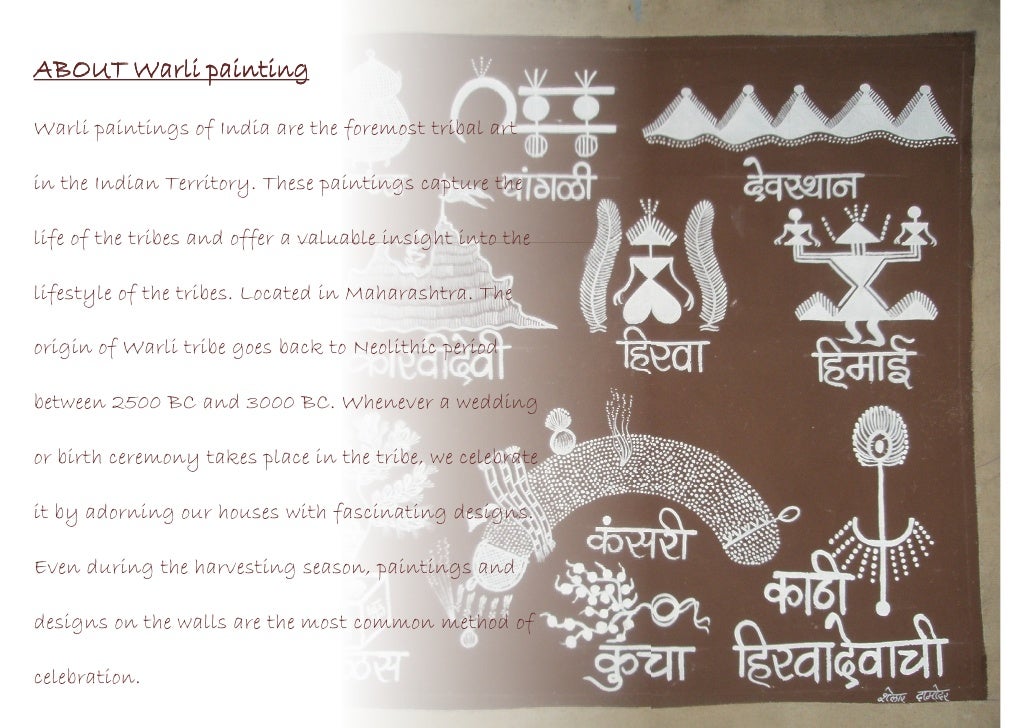 ABOUT Warli painting
Warli paintings of India are the foremost tribal art
in the Indian Territory. These paintings capture the
life of the tribes and offer a valuable insight into the
lifestyle of the tribes. Located in Maharashtra. The
origin of Warli tribe goes back to Neolithic period
between 2500 BC and 3000 BC. Whenever a wedding
or birth ceremony takes place in the tribe, we celebrate
it by adorning our houses with fascinating designs.
Even during the harvesting season, paintings and
designs on the walls are the most common method of
celebration.
देवस्थान
हिरवा
हिमाई
कंसरी
काठी
कुंचा
हिरवादेवाची
शेलार दामोदर